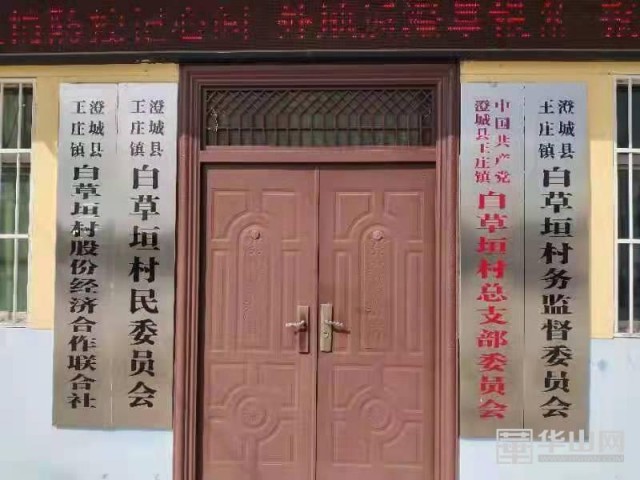 澄城县
王庄镇
白草垣村股份经济合作联合社
澄城县
王庄镇
白草垣村民委员会
中国共产党
澄城县王庄镇
白草垣村总支部委员会
澄城县
王庄镇
白草垣村务监督委员会
華山网